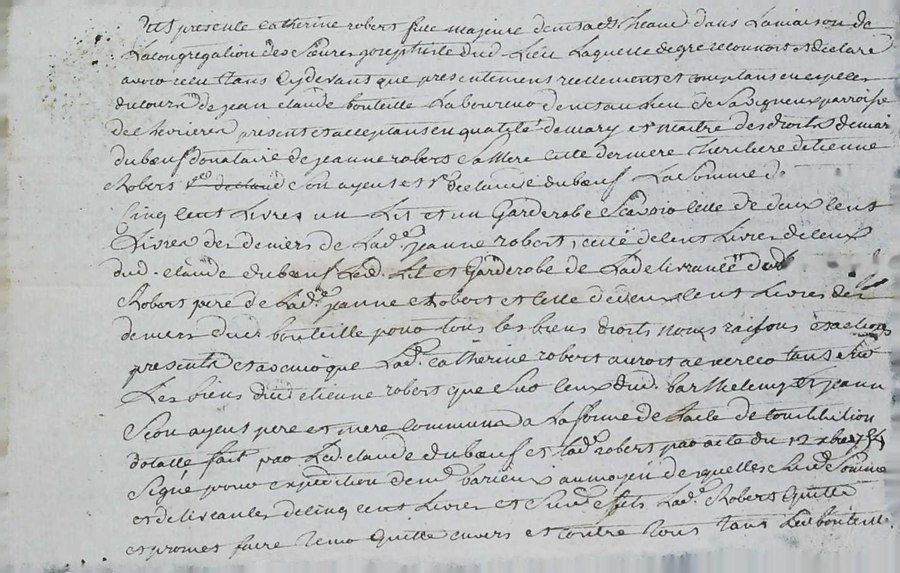 fut presente Catherine robert fille majeure demt a St heand dans La maison de
La congregation des Sœurs St joseph dud. Lieu Laquelle de gré reconnoit et declare
avoir reçu tans cy devant que presentement reellement et comptans en especes
du cours de jean claude bouteille Laboureur demt au Lieu de Savigneux parroisse
de chevrieres present et acceptans en qualité de mary et maitre des droits de mar
duboeuf donataire de jeanne robert Sa Mere cette derniere heritiere detienne
Robert Son ayeul et de claude duboeuf La Somme de
Cinq cent Livres un Lit et un Garderobe Scavoir celle de deux cent
Livres des deniers de Lade jeanne robert, celle de cent Livres de ceux
dud. claude duboeuf Led. Lit et Garderobe de La delivrance dud
Robert pere de Lade jeanne Robert et celle de deux cent Livres des
deniers dud. bouteille pour tous les biens droits noms raisons et actions
presents et a que Lade Catherine robert auroit a exercer tans Sur
Les biens dud etienne robert que Sur ceux dud. barthelemy et jeanne
Seon ayeux pere et mere communs a La forme de Lacte de constitution
dotalle fait par Led. claude duboeuf et lade robert par acte du 12 xbre 1754
Signé pour expedition de Me barieux au moyen desquelles Susd. Somme
et delivrances de cinq cent Livres et Susd. effets Lade Robert Quitte
et promet faire tenir Quitte envers et contre tous tans Led bouteille